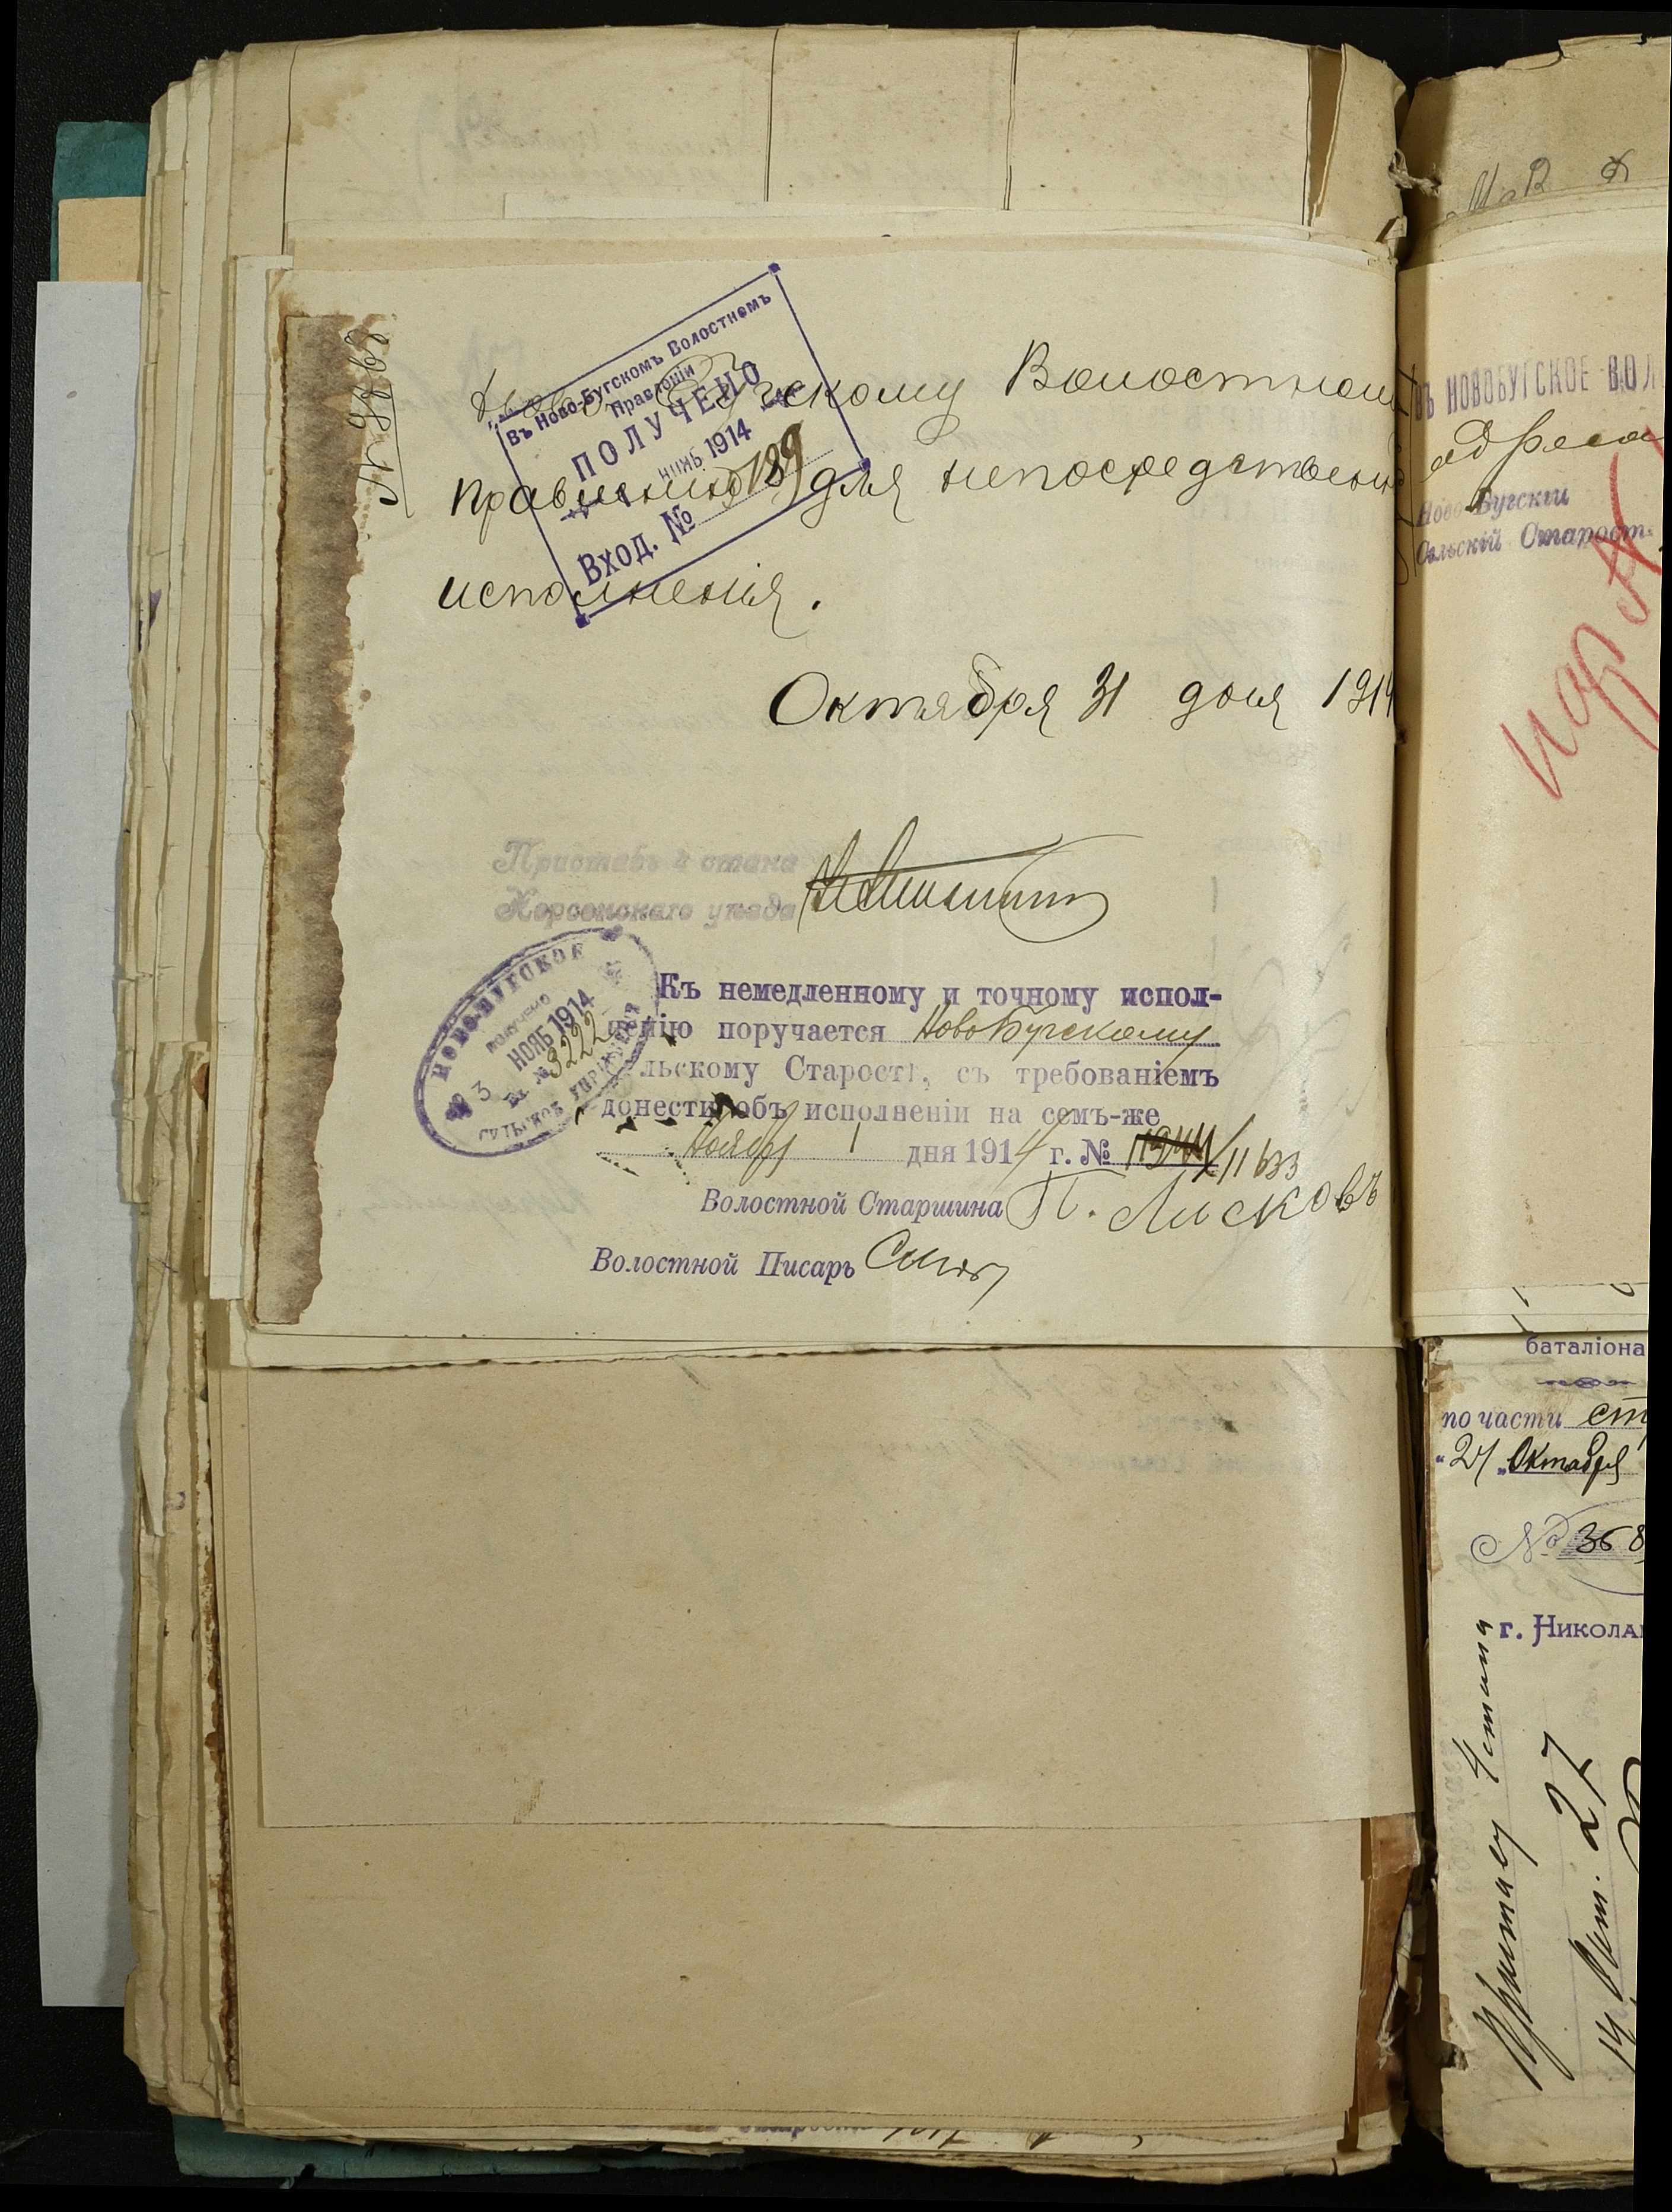 Въ Ново-Бугскомъ Волостномъ
Правленіи
ПОЛУЧЕНО
1914
Вход. №
№ 9868
Ново Бугскому Волостному
Правленію для непосредственн
исполненія.
Октября 31 дня 1914
Приставъ 4 стана
Херсонскаго уѣзда
НОВО-БУГСКОЕ
ПОЛУЧЕНО
3 НОЯБ 1914
Вх. № 3222
СЕЛЬСКОЕ УПРАВЛЕНІЕ
Къ немедленному и точному испол-
ненію поручается НовоБугскому
льскому Старостѣ, съ требованіемъ
донести объ исполненіи на семъ-же
Ноября 1 дня 1914 г. № 11633
Волостной Старшина П. Лисковъ
Волостной Писарь
М В Д
ВЪ НОВОБУГСКОЕ ВОЛ
Ново-Бугскій
Сельскій Старост
баталіона
по части ст
"24" Октября
№ 368
г. Никола
Приставу 4 стана
27